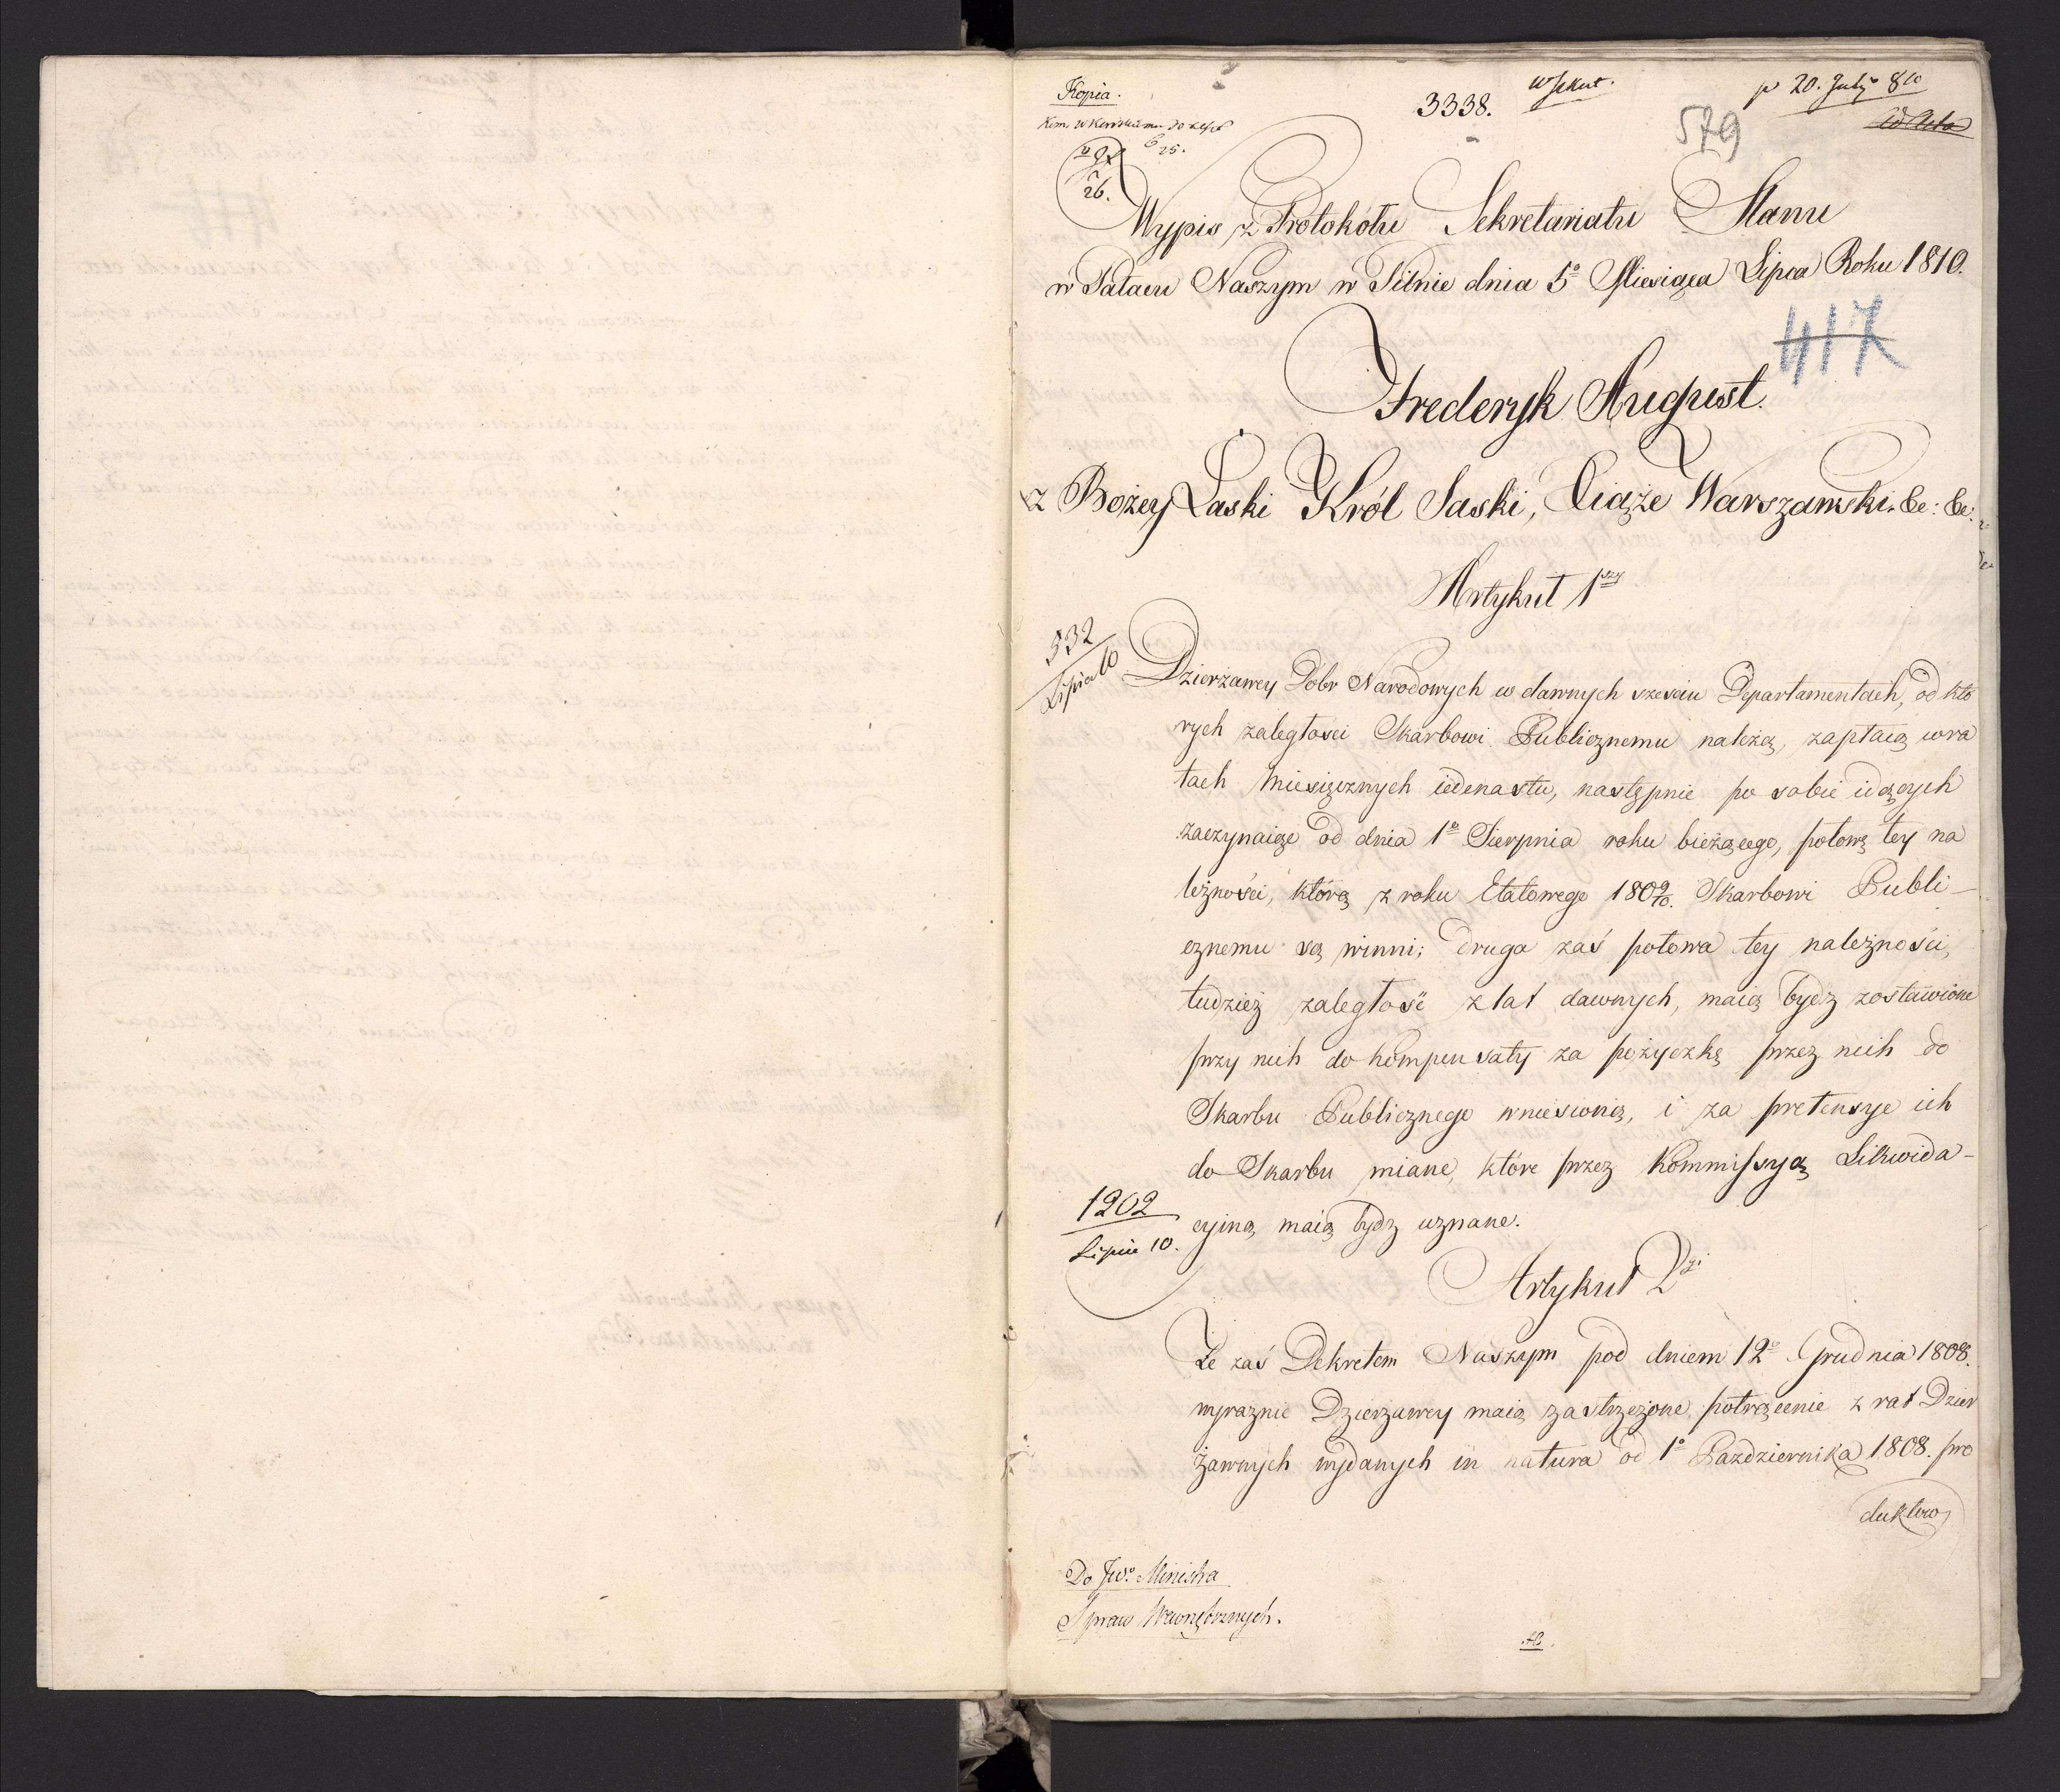 Kopia.
3338.
p 20. July 810
579
26.
25.
Wypis z Protokółu Sekretariatu Stanu
w Pałacu Naszym w Pilnie dnia 5º Miesiąca Lipca Roku 1810.
417
Frederyk August.
z Bożey Łaski Król Saski, Xiąże Warszawski. &c: &c:
Artykuł 1szy
332
Lipca 10
Dzierżawcy Dóbr Narodowych w dawnych sześciu Departamentach, od któ
rych zaległości Skarbowi Publicznemu należą, zapłacą w ra
tach miesięcznych iedenastu, następnie po sobie idących
zaczynaiąc od dnia 1º Sierpnia roku bieżącego, połowę tey na
leżności, którą z roku Etatowego 1809/10. Skarbowi Publi-
cznemu są winni; druga zaś połowa tey należności,
tudzież zaległość z lat dawnych, maią bydz zostawione
przy nich do kompensaty za pożyczkę przez nich do
Skarbu Publicznego wniesioną, i za pretensye ich
do Skarbu miane, które przez Kommissyą Likwida-
1202
Lipca 10.
cyiną maią bydz uznane.
Artykuł 2gi
Że zaś Dekretem Naszym pod dniem 12º Grudnia 1808.
wyraznie Dzierżawcy maią zastrzeżone potrącenie z rat Dzier
żawnych wydanych in natura od 1º Pazdziernika 1808. pro
duktow
Do JWo. Ministra
Spraw Wewnętrznych.